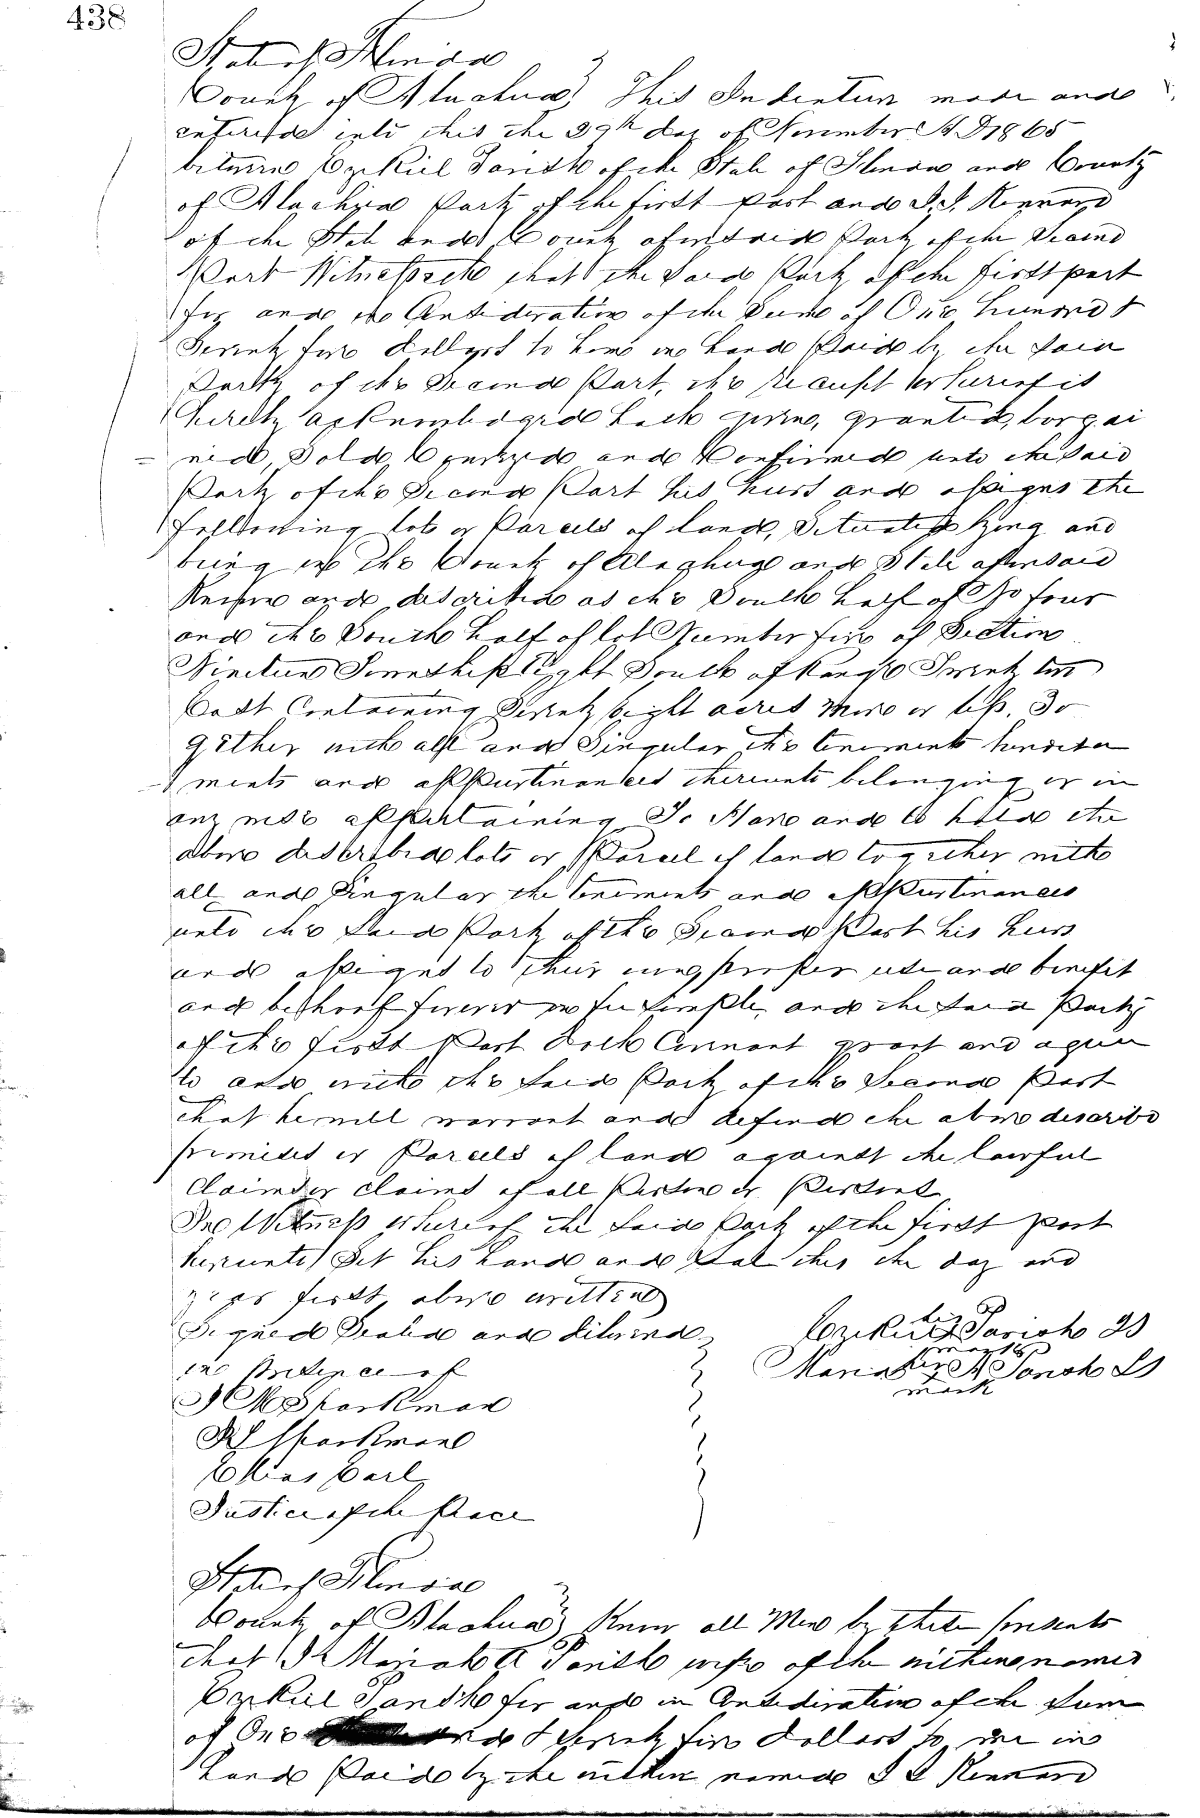 438
State of Florida
County of Alachua } This Indenture made and
entered into this the 29th day of November A D 1865
between Ezekiel Parish of the State of Florida and County
of Alachua Party of the first Part and J. J. Kennard
of the State and County aforesaid Party of the Second
Part Witnesseth that the Said Party of the first part
for and in Consideration of the Sum of One hundred &
Seventy five dollars to him in hand Paid by the Said
Party of the Second Part, the receipt whereof is
hereby acknowledged hath given, granted, bargai
ned, Sold, Conveyed and Confirmed unto the Said
Party of the Second Part his heirs and assigns the
following lots or Parcels of land, Situated lying and
being in the County of Alachua and State aforesaid
Known and described as the South half of No four
and the South half of lot Number five of Section
Nineteen Township Eight South of Range Twenty two
East Containing Seventy eight acres More or less. To
gether with all and Singular the tenements heredita
ments and appurtinances thereunto belonging or in
any wise appertaining To Have and to hold the
above described lots or Parcel of land together with
all and Singular the tenements and appurtinances
unto the Said Party of the Second Part his heirs
and assigns to their own proper use and benefit
and behoof forever in fee simple, and the Said Party
of the first Part doth Covenant grant and agree
to and with the Said Party of the Second Part
that he will warrant and defend the above describe
premises or Parcels of land against the lawful
Claims or claims of all Person or Persons
In Witness whereof the Said Party of the first part
hereunto Set his hand and Seal this the day and
year first above written
Signed Sealed and delivered
in presence of
J M Sparkman
Sparkman
Elias Earl
Justice of the Peace
his
Ezekiel Parish LS
mark
her
Mariah A Parish LS
mark
State of Florida
County of Alachua } Know all Men by these presents
that I Mariah A Parish wife of the within named
Ezekiel Parish for and in Consideration of the Sum
of One & Seventy five dollars to me in
hand Paid by the within named J J Kennard